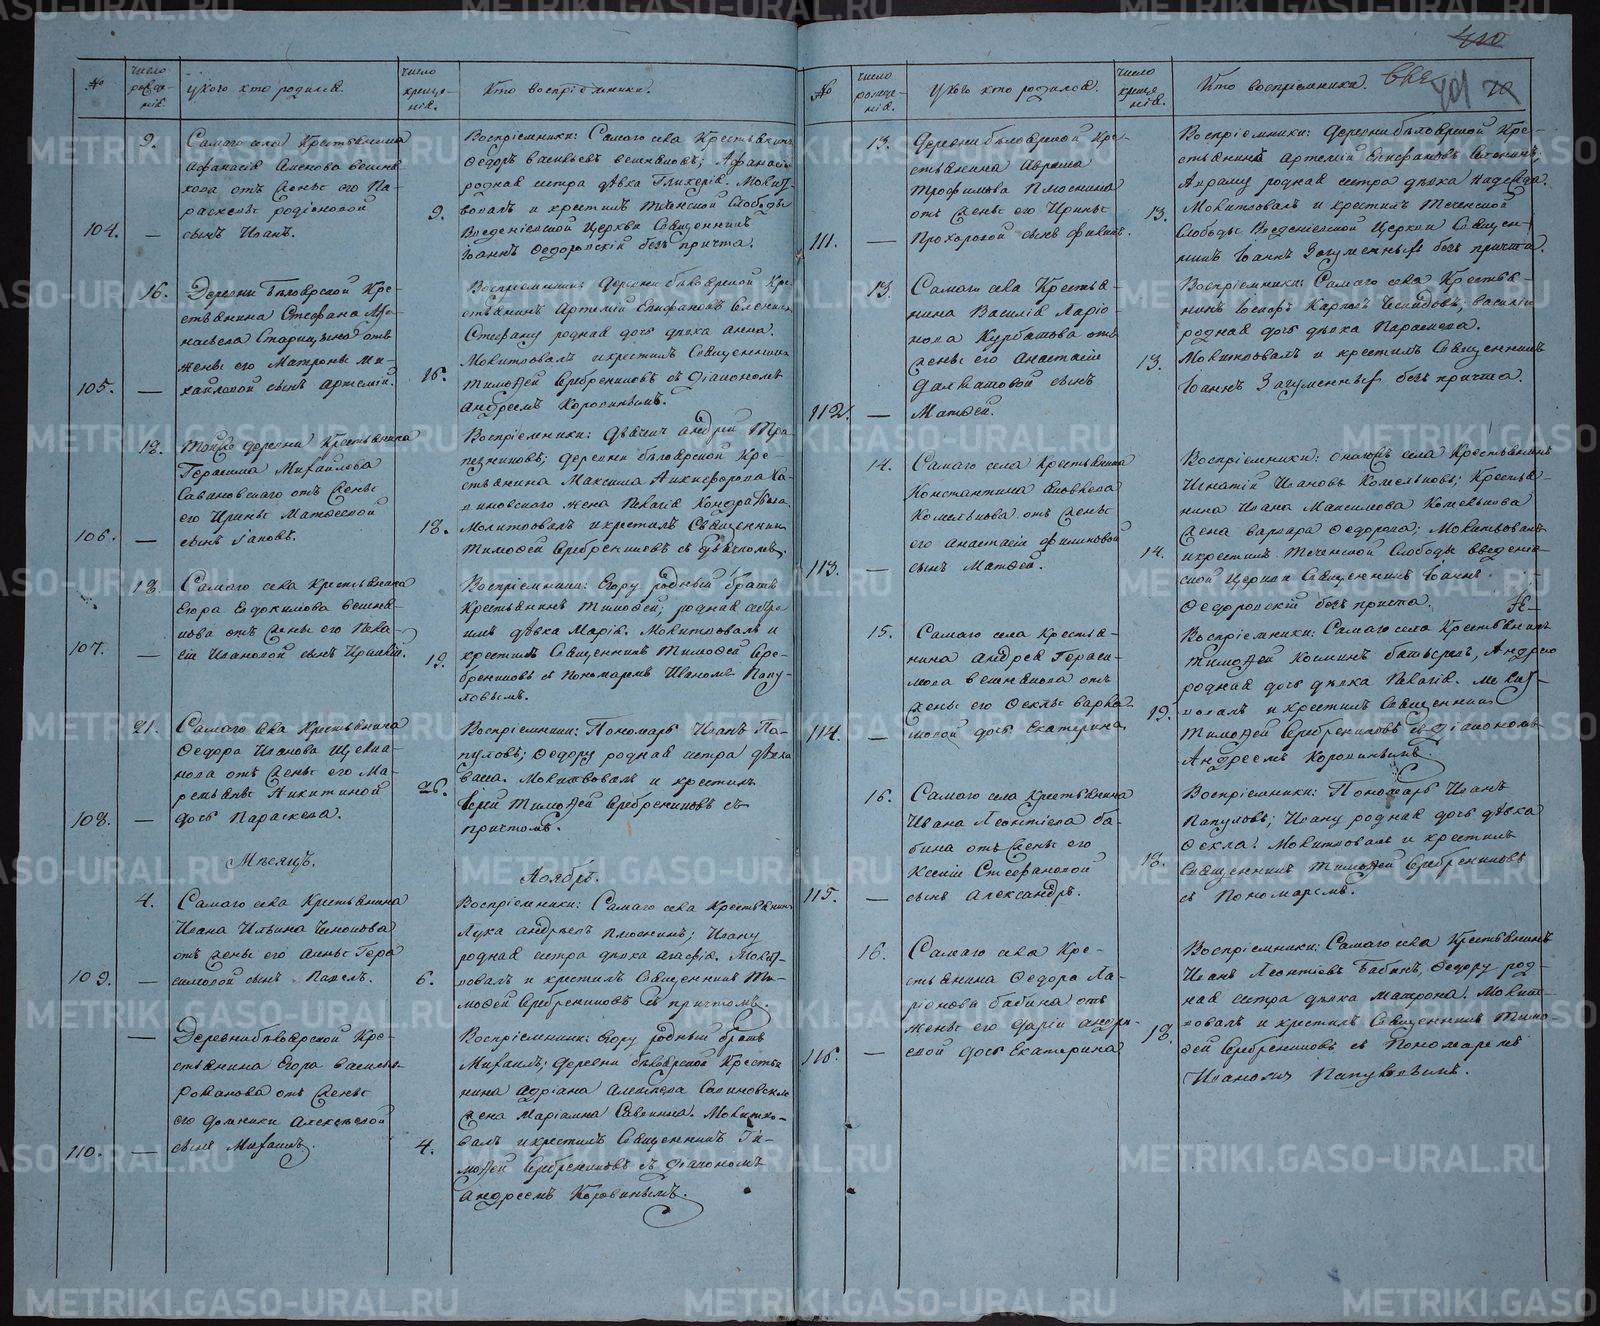 №
число рожде-нія.
у кого кто родился.
число креще-нія.
Кто воспріемники.
9.
Самаго села Крестьянина
Афанасія Семенова вешня-
кова отъ жены его Па-
расковьи родіоновой
104. — сынъ Иванъ.
9.
Воспріемники: Самаго села Крестьянинъ
Ѳедоръ васильевъ вешняковъ; Афанасію
родная сестра дѣвка Гликерія. Молит-
вовалъ и крестилъ Теченской Слободы
Введеніевской Церкви Священникъ
Іоаннъ Ѳедоровскій безъ причта.
16.
Деревни Бѣлоярской Кре-
стьянина Стефана
Старицына отъ
жены его Матроны Ми-
105. — хайловой сынъ Артемій.
16.
Воспріемники: деревни бѣлоярской Кре-
стьянинъ Артемій Епифановъ
Стефану родная дочь дѣвка анна.
Молитвовалъ и крестилъ Священникъ
Тимоѳей Серебрениковъ съ діакономъ
андреемъ Коровинымъ.
18.
Той же деревни Крестьянина
Герасима Михайлова
Савиновскаго отъ жены
его Ирины Матѳеевой
106. — сынъ Іаковъ.
18.
Воспріемники: дьячекъ андрей Тра-
пезниковъ; деревни бѣлоярской Кре-
стьянина Максима Никифорова Са-
виновскаго жена Пелагія Кондратьева.
Молитвовалъ и крестилъ Священникъ
Тимоѳей Серебрениковъ съ дьячкомъ.
18.
Самаго села Крестьянина
Егора Евдокимова вешня-
кова отъ жены его Пела-
107. — гіи Ивановой сынъ Ираклій.
19.
Воспріемники: Егору родный братъ
Крестьянинъ Тимоѳей; родная сестра
имъ дѣвка Марія. Молитвовалъ и
крестилъ Священникъ Тимоѳей Сере-
брениковъ съ Пономаремъ Иваномъ Папу-
ловымъ.
21.
Самаго села Крестьянина
Ѳедора Иванова Щекла-
нова отъ жены его Ма-
ремьяны Никитиной
108. — дочь Параскева.
26.
Воспріемники: Пономарь Иванъ Па-
пуловъ; Ѳедору родная сестра дѣвка
васса. Молитвовалъ и крестилъ
Іерей Тимоѳей Серебрениковъ съ
причтомъ.
Мѣсяцъ. Ноябрь.
4.
Самаго села Крестьянина
Ивана Ильина
отъ жены его анны Гера-
109. — симовой сынъ Павелъ.
6.
Воспріемники: Самаго села Крестьянинъ
Лука андреевъ Плюснинъ; Ивану
родная сестра дѣвка агафія. Молит-
вовалъ и крестилъ Священникъ Ти-
моѳей Серебрениковъ съ причтомъ.
—
Деревни бѣлоярской Кре-
стьянина Егора васильева
Романова отъ жены
его домники Алексѣевой
110. — сынъ Михаилъ.
4.
Воспріемники: Егору родный братъ
Михаилъ; деревни бѣлоярской Крестья-
нина Адріана Алексѣева Савиновскаго
жена Маріамна Саввина. Молитво-
валъ и крестилъ Священникъ Ти-
моѳей Серебрениковъ съ діакономъ
андреемъ Коровинымъ.
420
701
№
число рожде-нія.
у кого кто родился.
число креще-нія.
Кто воспріемники.
13.
Деревни бѣлоярской Кре-
стьянина Аврама
Трофимова Плюснина
отъ жены его Ирины
111. — Прохоровой сынъ филипъ.
13.
Воспріемники: деревни бѣлоярской Кре-
стьянинъ Артемій Епифановъ
Авраму родная сестра дѣвка Надежда.
Молитвовалъ и крестилъ Теченской
Слободы Введеніевской Церкви Священ-
никъ Іоаннъ Загуменныхъ безъ причта.
13.
Самаго села Крестья-
нина Василія Ларіо-
нова Курбатова отъ
жены его Анастасіи
Далматовой сынъ
112. — Матѳей.
13.
Воспріемники: Самаго села Крестья-
нинъ Іосифъ Карповъ василію
родная дочь дѣвка Параскева.
Молитвовалъ и крестилъ Священникъ
Іоаннъ Загуменныхъ безъ причта.
14.
Самаго села Крестьянина
Константина Яковлева
Комелькова отъ жены
его анастасіи филиповой
113. — сынъ Матѳей.
14.
Воспріемники: онаго села Крестьянинъ
Игнатій Ивановъ Комельковъ; Крестья-
нина Ивана Максимова Комелькова
жена варвара Ѳедорова; Молитвовалъ
и крестилъ Теченской Слободы введенів-
ской Церкви Священникъ Іоаннъ
Ѳедоровскій безъ причта.
15.
Самаго села Крестья-
нина андрея Гераси-
мова вешнякова отъ
жены его Ѳеклы варла-
114. — мовой дочь Екатерина.
19.
Воспріемники: Самаго села Крестьянинъ
Тимоѳей Козминъ Андрею
родная дочь дѣвка Пелагія. Молит-
вовалъ и крестилъ Священникъ
Тимоѳей Серебрениковъ съ діакономъ
Андреемъ Коровинымъ.
16.
Самаго села Крестьянина
Ивана Леонтіева ба-
бина отъ жены его
Ксеніи Стефановой
115. — сынъ Александръ.
18.
Воспріемники: Пономарь Иванъ
Папуловъ; Ивану родная дочь дѣвка
Ѳекла. Молитвовалъ и крестилъ
Священникъ Тимоѳей Серебрениковъ
съ Пономаремъ.
16.
Самаго села Кре-
стьянина Ѳедора Ла-
ріонова бабина отъ
жены его дарьи андре-
116. — евой дочь Екатерина
18.
Воспріемники: Самаго села Крестьянинъ
Иванъ Леонтіевъ Бабинъ, Ѳедору род-
ная сестра дѣвка Матрона. Молит-
вовалъ и крестилъ Священникъ Тимо-
ѳей Серебрениковъ съ Пономаремъ
Иваномъ Папуловымъ.
METRIKI.GASO-URAL.RU